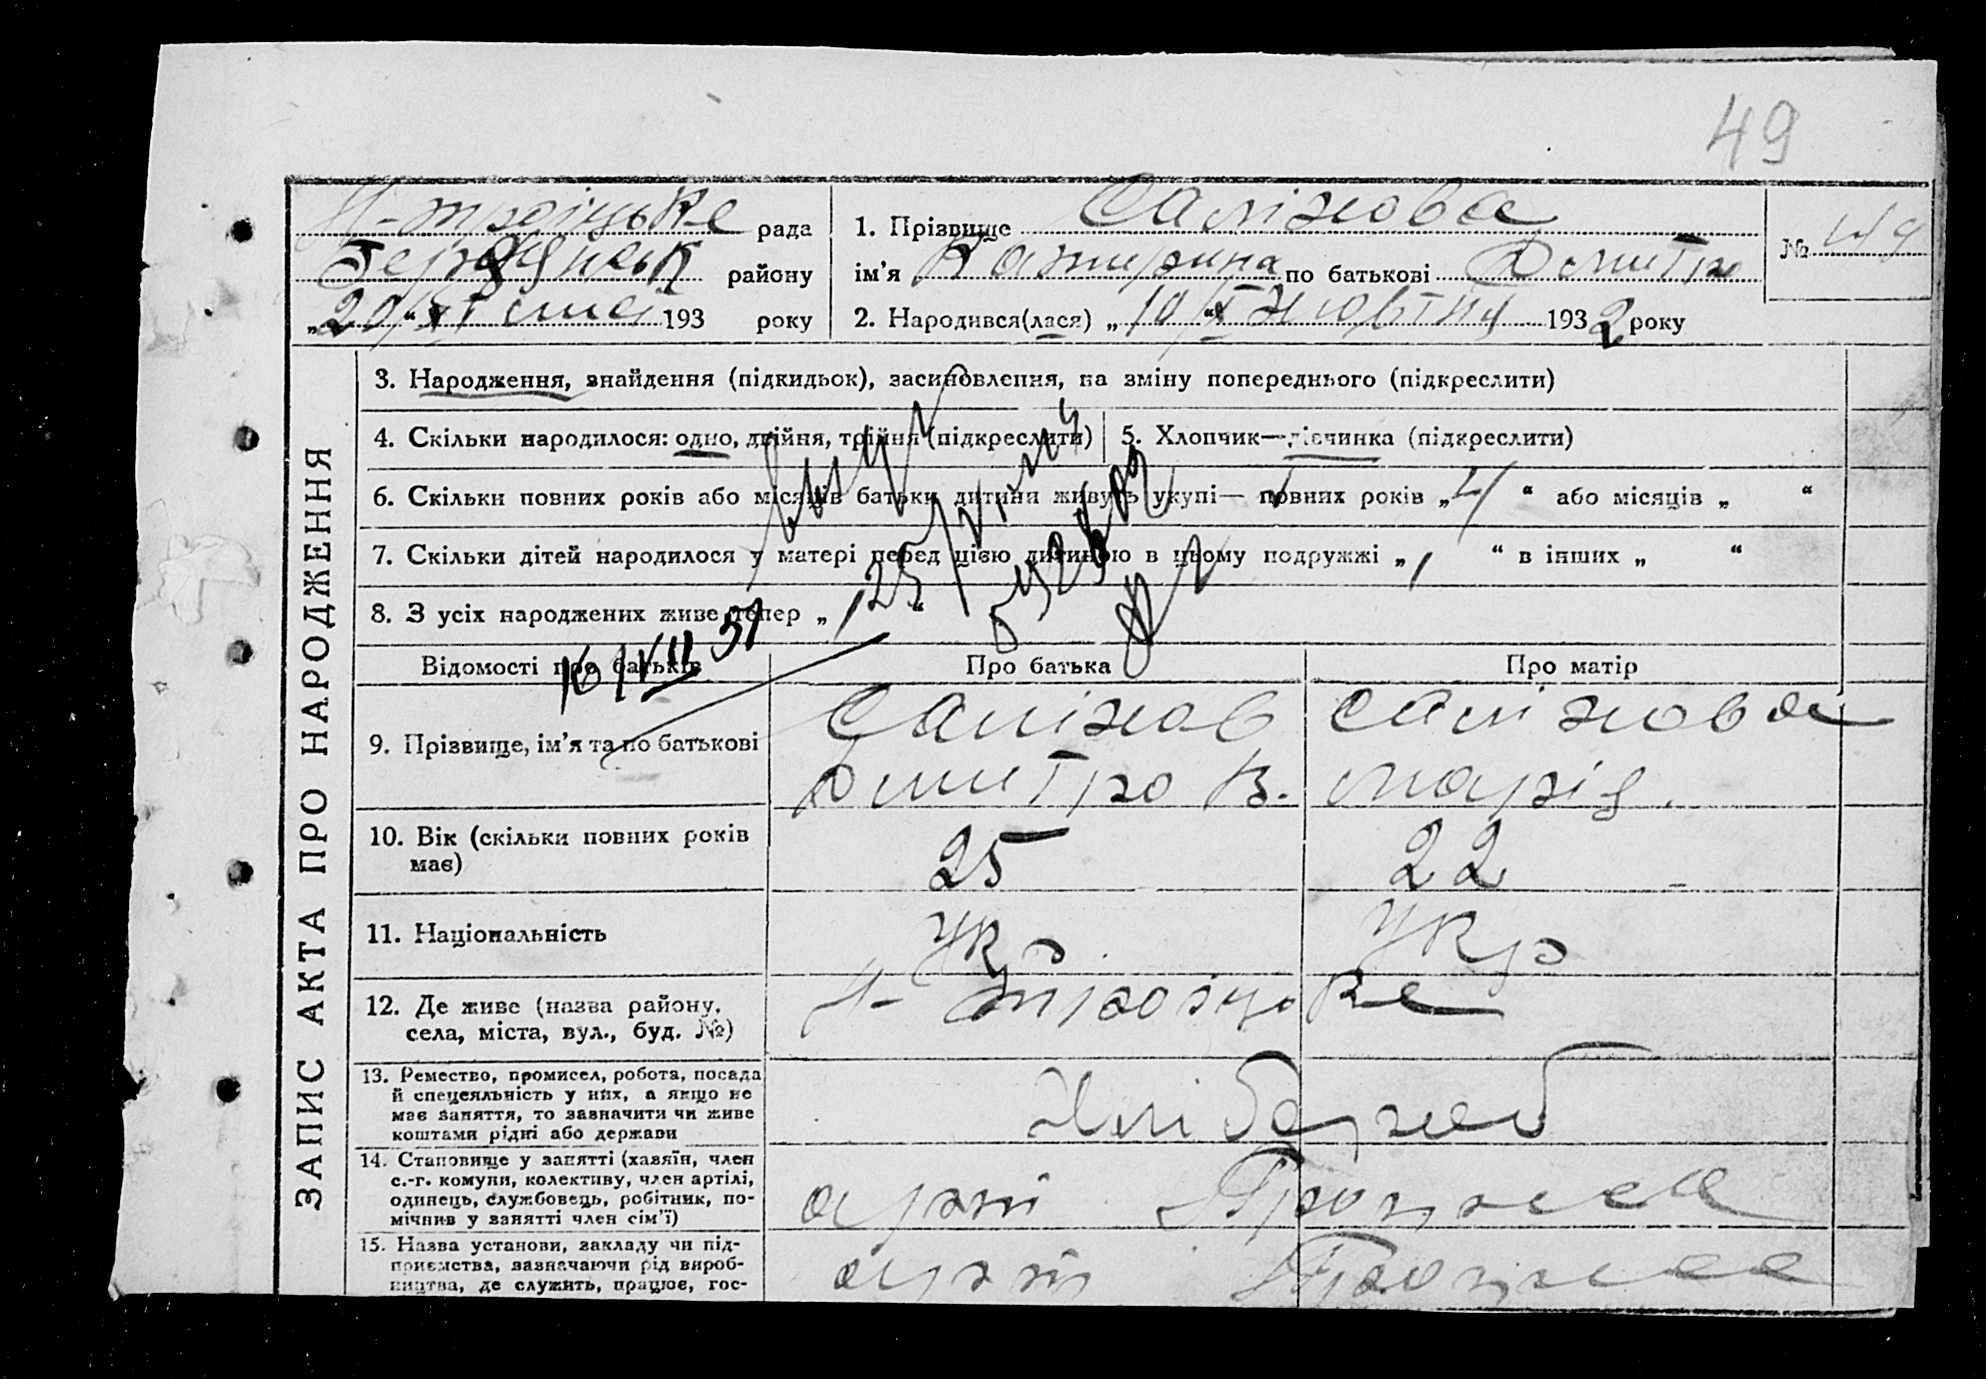 49
Н-троїцьке рада
району
"20/XI 193 року
1. Прізвище Салізнова
ім'я Катирина по батькові Дмитро
2. Народився(лася) „10/X жовтня 1932 року
№ 49
ЗАПИС АКТА ПРО НАРОДЖЕННЯ
3. Народження, знайдення (підкидьок), засиновлення, на зміну попереднього (підкреслити)
4. Скільки народилося: одно, двійня, трійня (підкреслити)
5. Хлопчик—дівчинка (підкреслити)
6. Скільки повних років або місяців батьки дитини живуть укупі— повних років „4“ або місяців „ “
7. Скільки дітей народилося у матері перед цією дитиною в цьому подружжі „1 “ в інших „ “
8. З усіх народжених живе тепер „1“
16/VII 51
Відомості про батьків
Про батька
Про матір
9. Прізвище, ім'я та по батькові
Салізнов
Дмитро В.
Салізнова
Марія.
10. Вік (скільки повних років
має)
25
22
11. Національність
Укр.
Укр
12. Де живе (назва району,
села, міста, вул., буд. №)
Н-Троїцьке
13. Ремество, промисел, робота, посада
й спецеяльність у них, а якщо не
має заняття, то зазначити чи живе
коштами рідні або держави
Хлібороб
14. Становище у занятті (хазяїн, член
с.-г. комуни, колективу, член артілі,
одинець, службовець, робітник, по-
мічник у занятті член сім'ї)
арті
15. Назва установи, закладу чи під-
приємства, зазначаючи рід вироб-
ництва, де служить, працює, гос-
арті